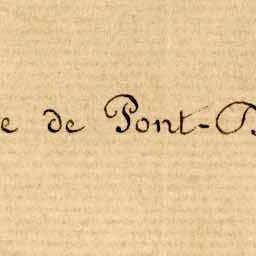 e de Pont-